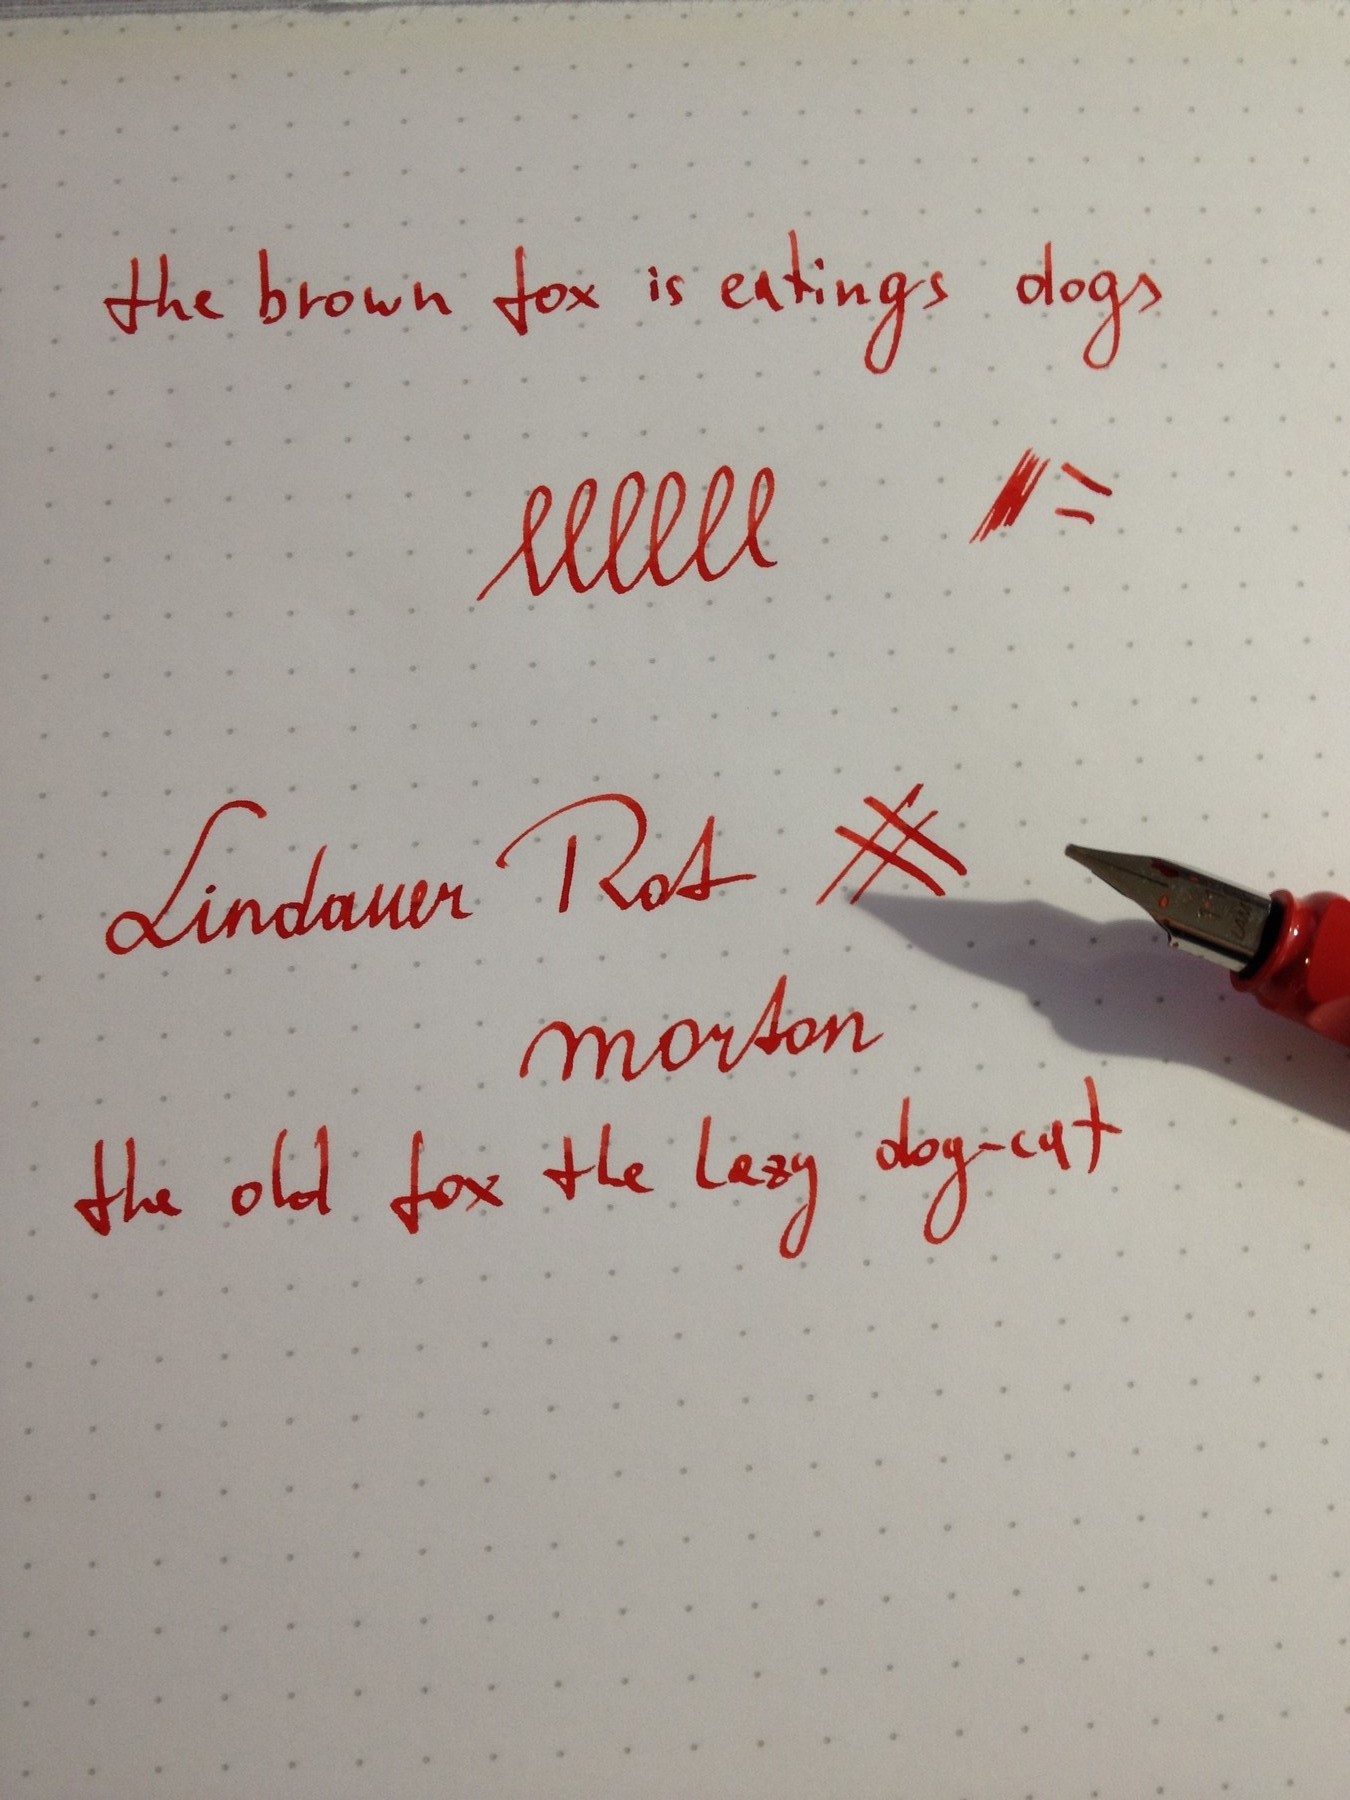 the brown fox is eatings dogs
Lindauer Rot
morton
the old fox the lazy dog-cat